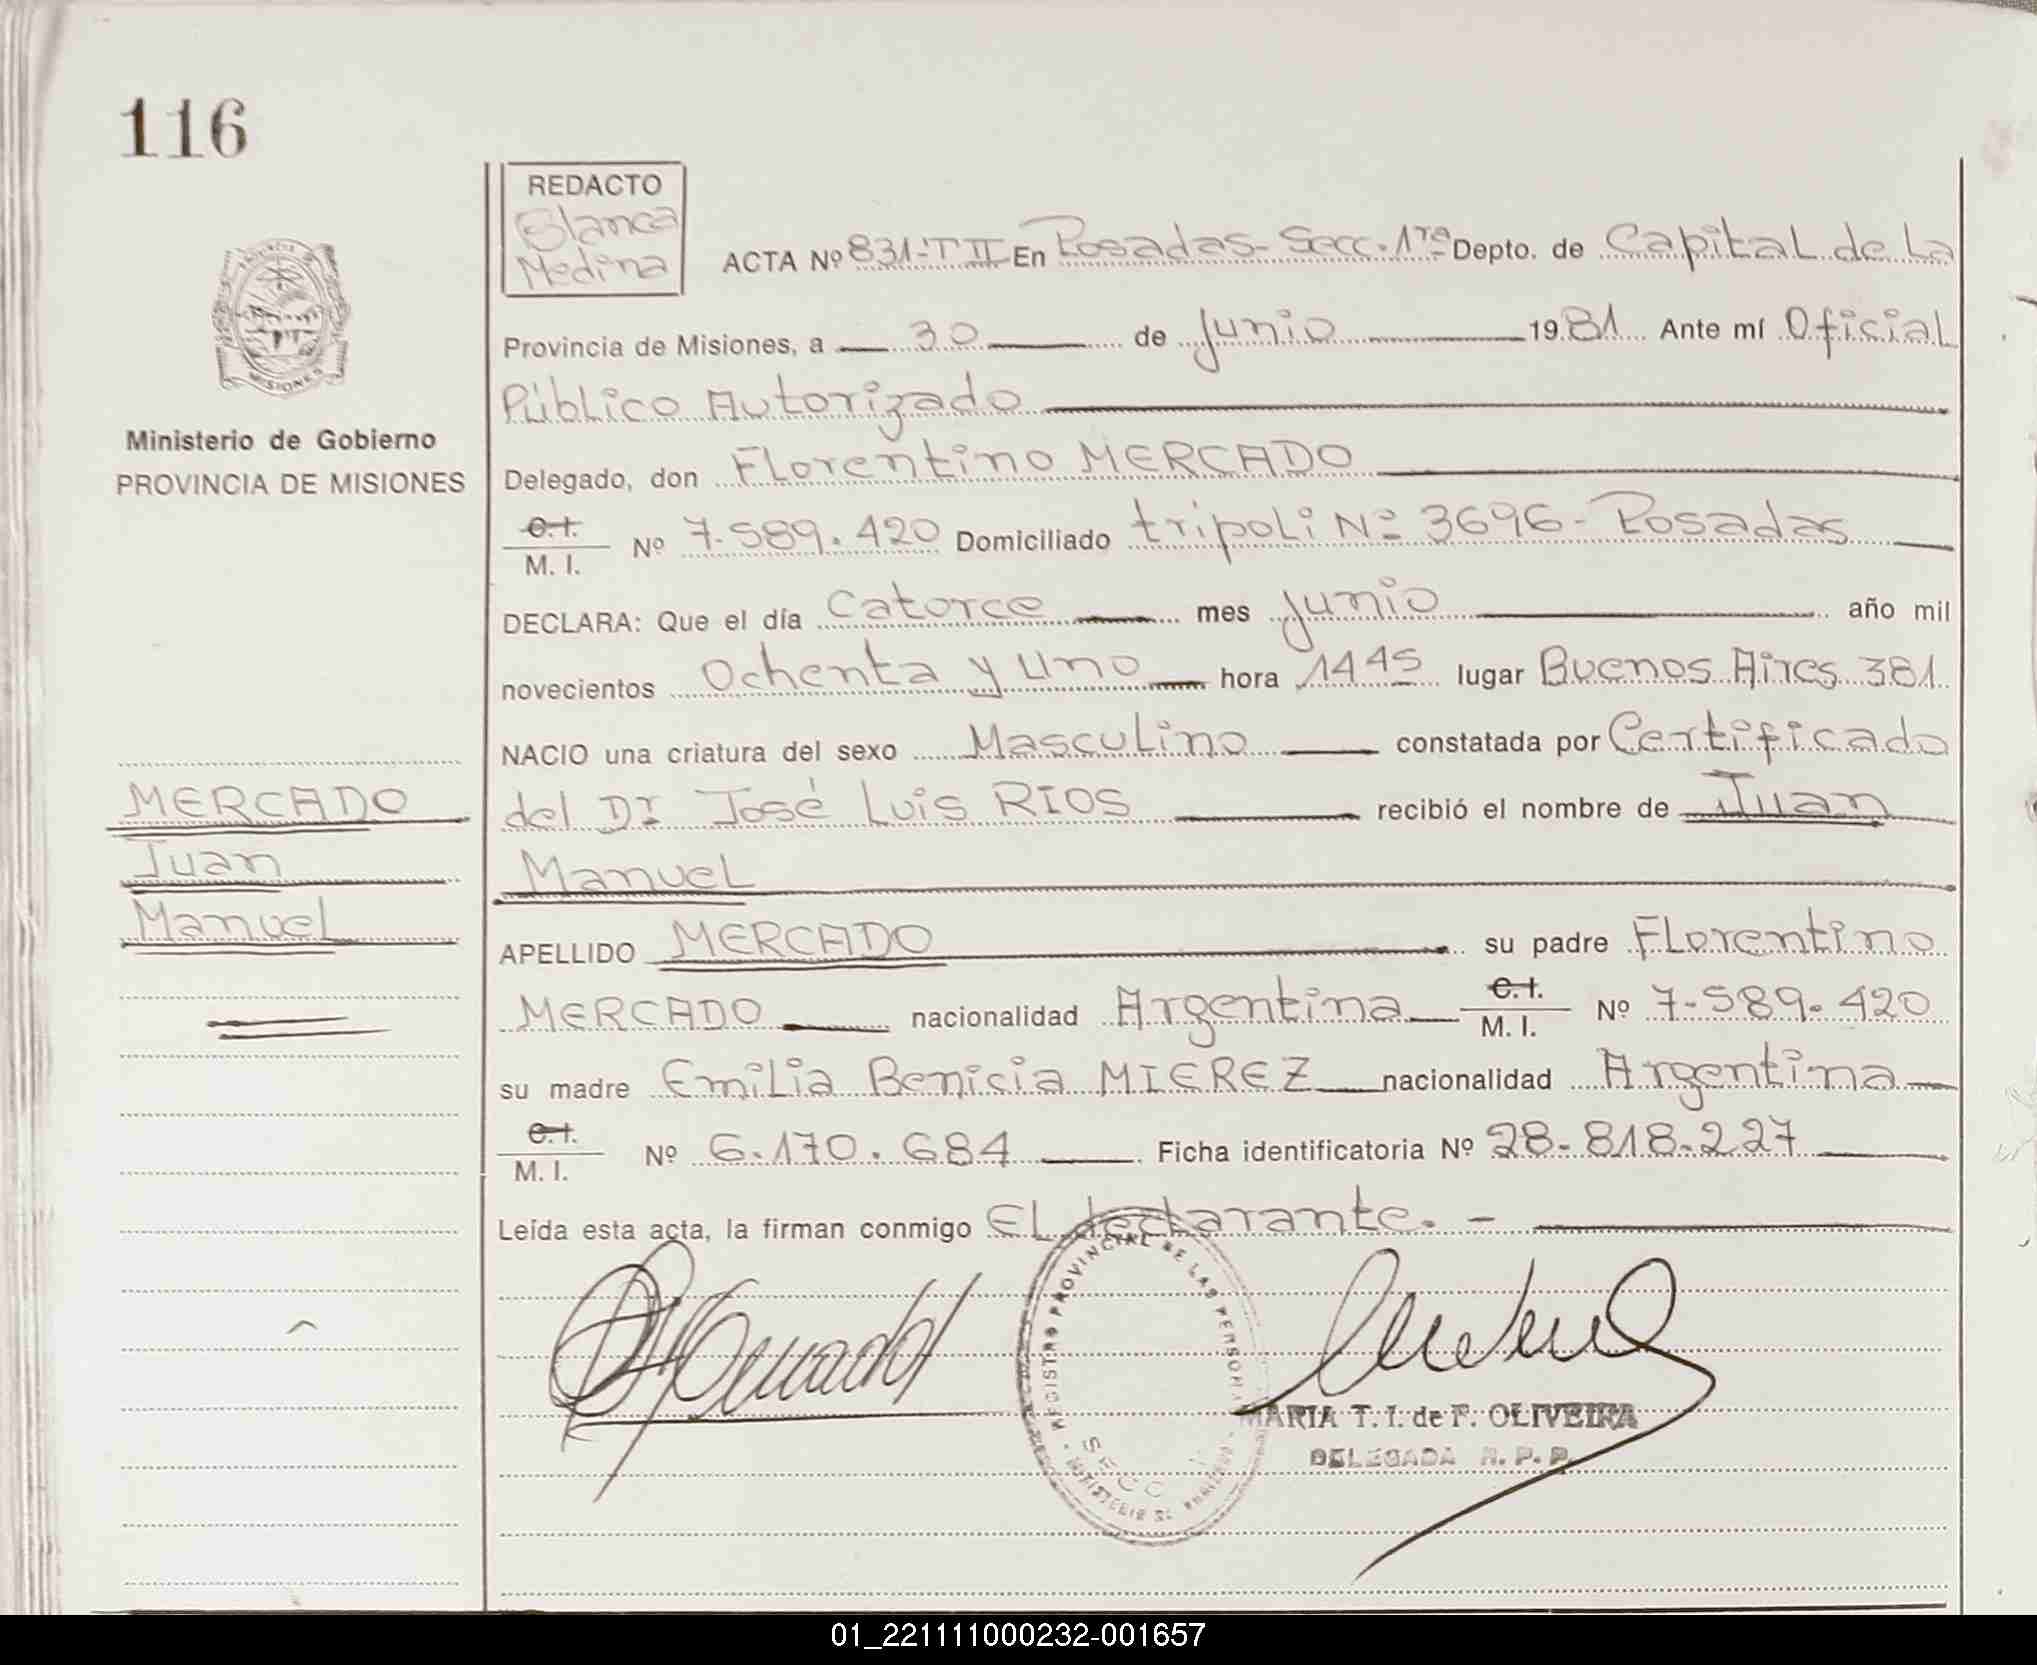 116
REDACTO
Blanca
Medina
ACTA Nº 831-T II En Posadas-Secc. 1ra Depto. de Capital de La
Provincia de Misiones, a 30 de junio 1981 Ante mí Oficial
Público Autorizado
Delegado, don Florentino MERCADO
C.I.
M. I. Nº 7.589.420 Domiciliado tripoli Nº 3696-Posadas
DECLARA: Que el día catorce mes junio año mil
novecientos Ochenta y uno hora 14 45 lugar Buenos Aires 381
NACIO una criatura del sexo Masculino constatada por Certificado
del Dr José Luis RIOS recibió el nombre de Juan
Manuel
APELLIDO MERCADO su padre Florentino
MERCADO nacionalidad Argentina C.I.
M. I. Nº 7.589.420
su madre Emilia Benicia MIEREZ nacionalidad Argentina
C.I.
M. I. Nº 6.170.684 Ficha identificatoria Nº 28-818-227
Leída esta acta, la firman conmigo El declarante. -
MISIONES
Ministerio de Gobierno
PROVINCIA DE MISIONES
MERCADO
Juan
Manuel
REGISTRO PROVINCIAL DE LAS PERSONAS
SECC
MARIA T. I. de F. OLIVEIRA
DELEGADA R. P. P.
01_221111000232-001657